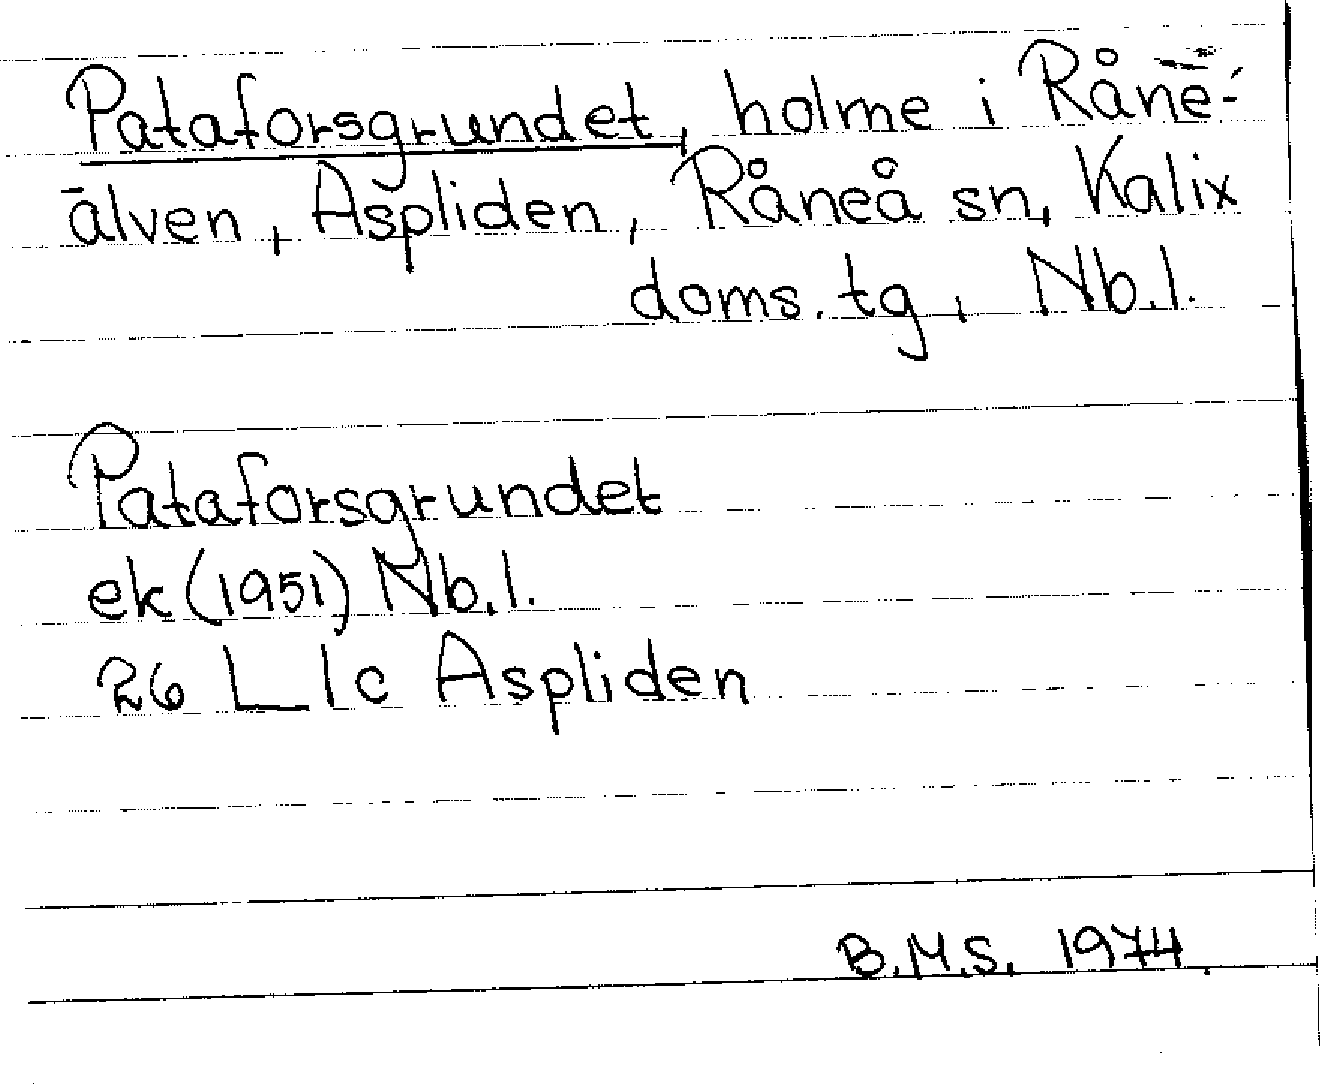 Pataforsgrundet, holme i Råne-
älven, Aspliden, Råneå sn, Kalix
doms. tg, Nb.l.
Pataforsgrundet
ek (1951) Nb.l.
26 L 1c Aspliden
B.M.S. 1974.